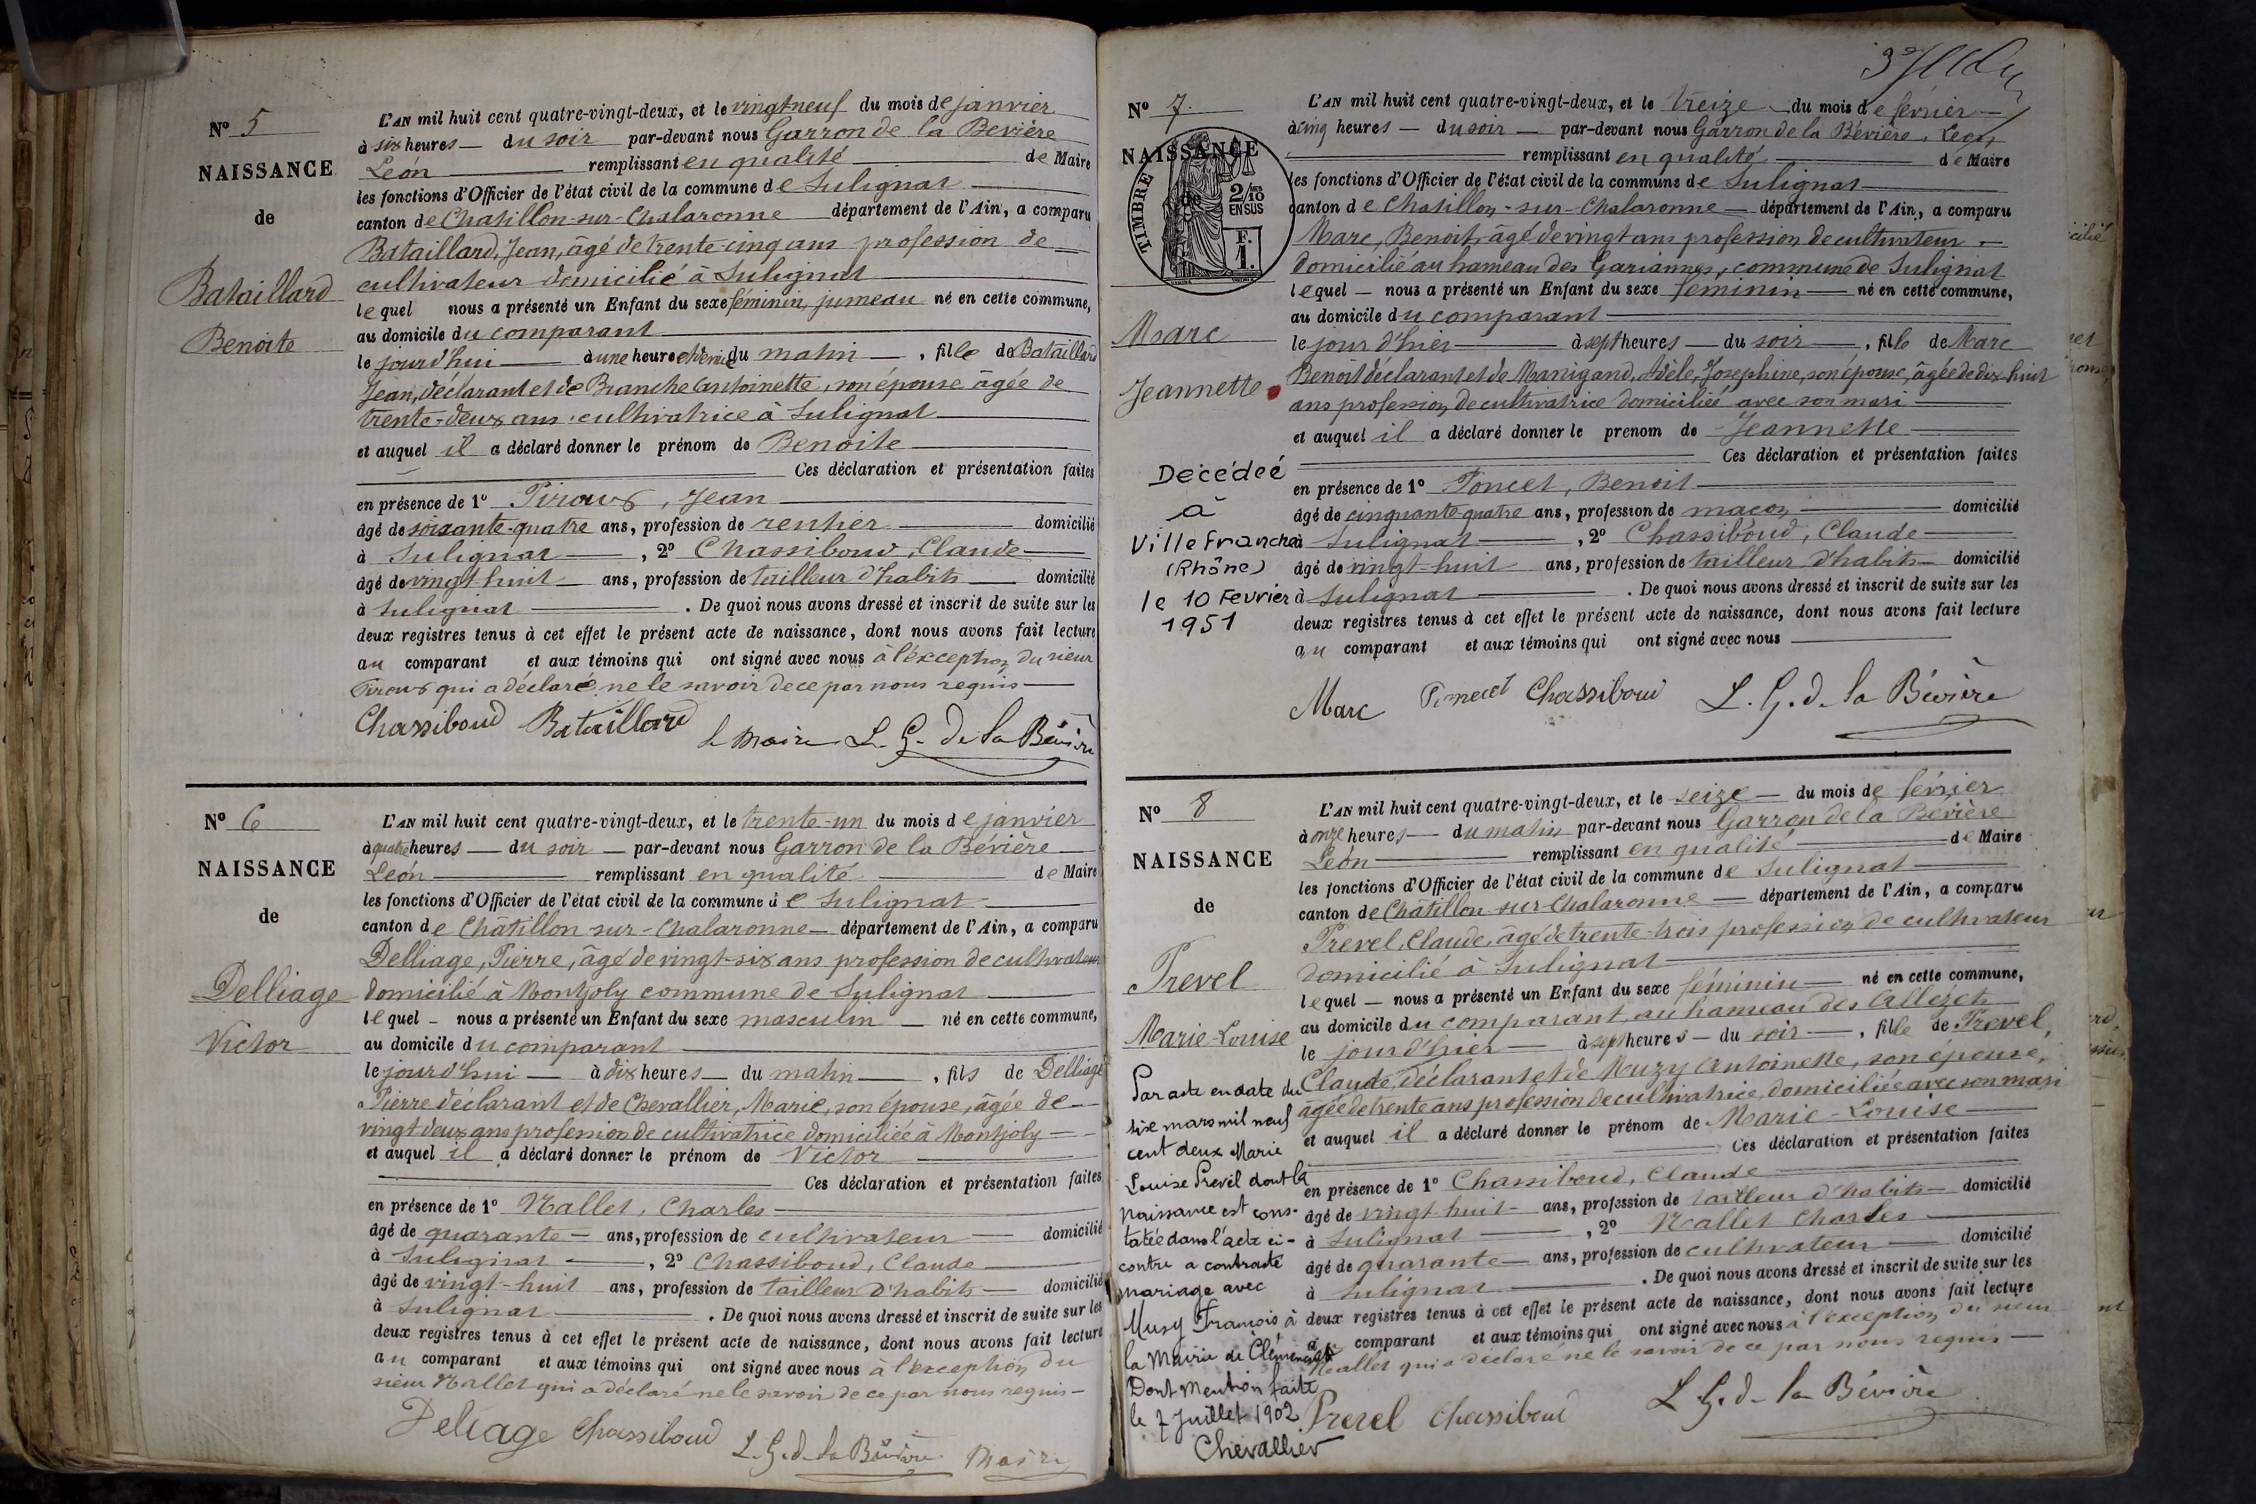 Nº 5
NAISSANCE
de
Bataillard
Benoite
L'AN mil huit cent quatre-vingt-deux, et le vingt neuf du mois de janvier
à six heures — du soir par-devant nous Garron de la Bevière
Léon remplissant en qualité de Maire
les fonctions d'Officier de l'état civil de la commune de Sulignat
canton de Chatillon-sur-Chalaronne département de l'Ain, a comparu
Bataillard, Jean, âgé de trente-cinq ans profession de
cultivateur domicilié à Sulignat
lequel nous a présenté un Enfant du sexe féminin, jumeau né en cette commune,
au domicile du comparant
le jourd'hui à une heure et demie du matin —, fille de Bataillard
Jean, déclarant et de Branche Antoinette, son épouse âgée de
trente-deux ans, cultivatrice à Sulignat
et auquel il a déclaré donner le prénom de Benoite
Ces déclaration et présentation faites
en présence de 1º Piroux, Jean
âgé de soixante-quatre ans, profession de rentier domicilié
à Sulignat —, 2º Chassiboud, Claude
âgé de vingt-huit ans, profession de tailleur d'habits domicilié
à Sulignat . De quoi nous avons dressé et inscrit de suite sur les
deux registres tenus à cet effet le présent acte de naissance, dont nous avons fait lecture
au comparant et aux témoins qui ont signé avec nous à l'exception du sieur
Piroux qui a déclaré ne le savoir de ce par nous requis
Chassiboud Bataillard le Maire L. G. de la Bévière
Nº 6
NAISSANCE
de
Delliage
Victor
L'AN mil huit cent quatre-vingt-deux, et le trente-un du mois de janvier
à quatre heures — du soir — par-devant nous Garron de la Bévière
Léon remplissant en qualité de Maire
les fonctions d'Officier de l'état civil de la commune de Sulignat
canton de Châtillon-sur-Chalaronne — département de l'Ain, a comparu
Delliage, Pierre, âgé de vingt-six ans profession de cultivateur
domicilié à Montjoly commune de Sulignat
lequel — nous a présenté un Enfant du sexe masculin — né en cette commune,
au domicile du comparant
le jourd'hui — à dix heures — du matin —, fils de Delliage
Pierre déclarant et de Chevallier, Marie, son épouse, âgée de
vingt deux ans profession de cultivatrice domiciliée à Montjoly
et auquel il a déclaré donner le prénom de Victor
Ces déclaration et présentation faites
en présence de 1º Nallet, Charles
âgé de quarante — ans, profession de cultivateur domicilié
à Sulignat —, 2º Chassiboud, Claude
âgé de vingt-huit ans, profession de tailleur d'habits — domicilié
à Sulignat . De quoi nous avons dressé et inscrit de suite sur les
deux registres tenus à cet effet le présent acte de naissance, dont nous avons fait lecture
au comparant et aux témoins qui ont signé avec nous à l'exception du
sieur Nallet qui a déclaré ne le savoir de ce par nous requis
Deliage Chassiboud L. G. d. la Bévière Maire
Nº 7.
NAISSANCE
de
TIMBRE
2/10
EN SUS
F.
1.
Marc
Jeannette
Décédée
à
Villefranche
(Rhône)
le 10 Février
1951
L'AN mil huit cent quatre-vingt-deux, et le treize — du mois de février
à cinq heures — du soir — par-devant nous Garron de la Bévière, Léon,
remplissant en qualité de Maire
les fonctions d'Officier de l'état civil de la commune de Sulignat
canton de Chatillon-sur-Chalaronne — département de l'Ain, a comparu
Marc, Benoit, âgé de vingt ans profession de cultivateur
domicilié au hameau des Gariannes, commune de Sulignat
lequel — nous a présenté un Enfant du sexe féminin — né en cette commune,
au domicile du comparant
le jour d'hier à sept heures — du soir —, fille de Marc
Benoit déclarant et de Manigand, Adèle, Joséphine, son épouse, âgée de dix-huit
ans profession de cultivatrice domiciliée avec son mari
et auquel il a déclaré donner le prenom de Jeannette
Ces déclaration et présentation faites
en présence de 1º Poncet, Benoit
âgé de cinquante-quatre ans, profession de maçon domicilié
à Sulignat, 2º Chassiboud, Claude
âgé de vingt-huit ans, profession de tailleur d'habits — domicilié
à Sulignat . De quoi nous avons dressé et inscrit de suite sur les
deux registres tenus à cet effet le présent acte de naissance, dont nous avons fait lecture
au comparant et aux témoins qui ont signé avec nous
Marc Poncet Chassiboud L. G. d. la Bévière
Nº 8
NAISSANCE
de
Prevel
Marie-Louise
Par acte en date du
six mars mil neuf
cent deux Marie
Louise Prevel dont la
naissance est cons-
tatée dans l'acte ci-
contre a contracté
mariage avec
Musy François à
la Mairie de
Dont Mention faite
le 7 Juillet 1902
Chevallier
L'AN mil huit cent quatre-vingt-deux, et le seize — du mois de février
à onze heures — du matin par-devant nous Garron de la Bévière
Léon remplissant en qualité de Maire
les fonctions d'Officier de l'état civil de la commune de Sulignat
canton de Châtillon-sur-Chalaronne — département de l'Ain, a comparu
Prevel, Claude, âgé de trente-trois profession de cultivateur
domicilié à Sulignat
lequel — nous a présenté un Enfant du sexe féminin — né en cette commune,
au domicile du comparant au hameau des
le jour d'hier — à sept heures — du soir —, fille de Prevel,
Claude, déclarant et de Muzy Antoinette, son épouse,
âgée de trente ans profession de cultivatrice, domiciliée avec son mari
et auquel il a déclaré donner le prénom de Marie-Louise
Ces déclaration et présentation faites
en présence de 1º Chassiboud, Claude
âgé de vingt-huit ans, profession de tailleur d'habits — domicilié
à Sulignat, 2º Nallet Charles
âgé de quarante — ans, profession de cultivateur domicilié
à Sulignat . De quoi nous avons dressé et inscrit de suite sur les
deux registres tenus à cet effet le présent acte de naissance, dont nous avons fait lecture
au comparant et aux témoins qui ont signé avec nous à l'exception du sieur
Nallet qui a déclaré ne le savoir de ce par nous requis
Prevel Chassiboud L. G. d. la Bévière